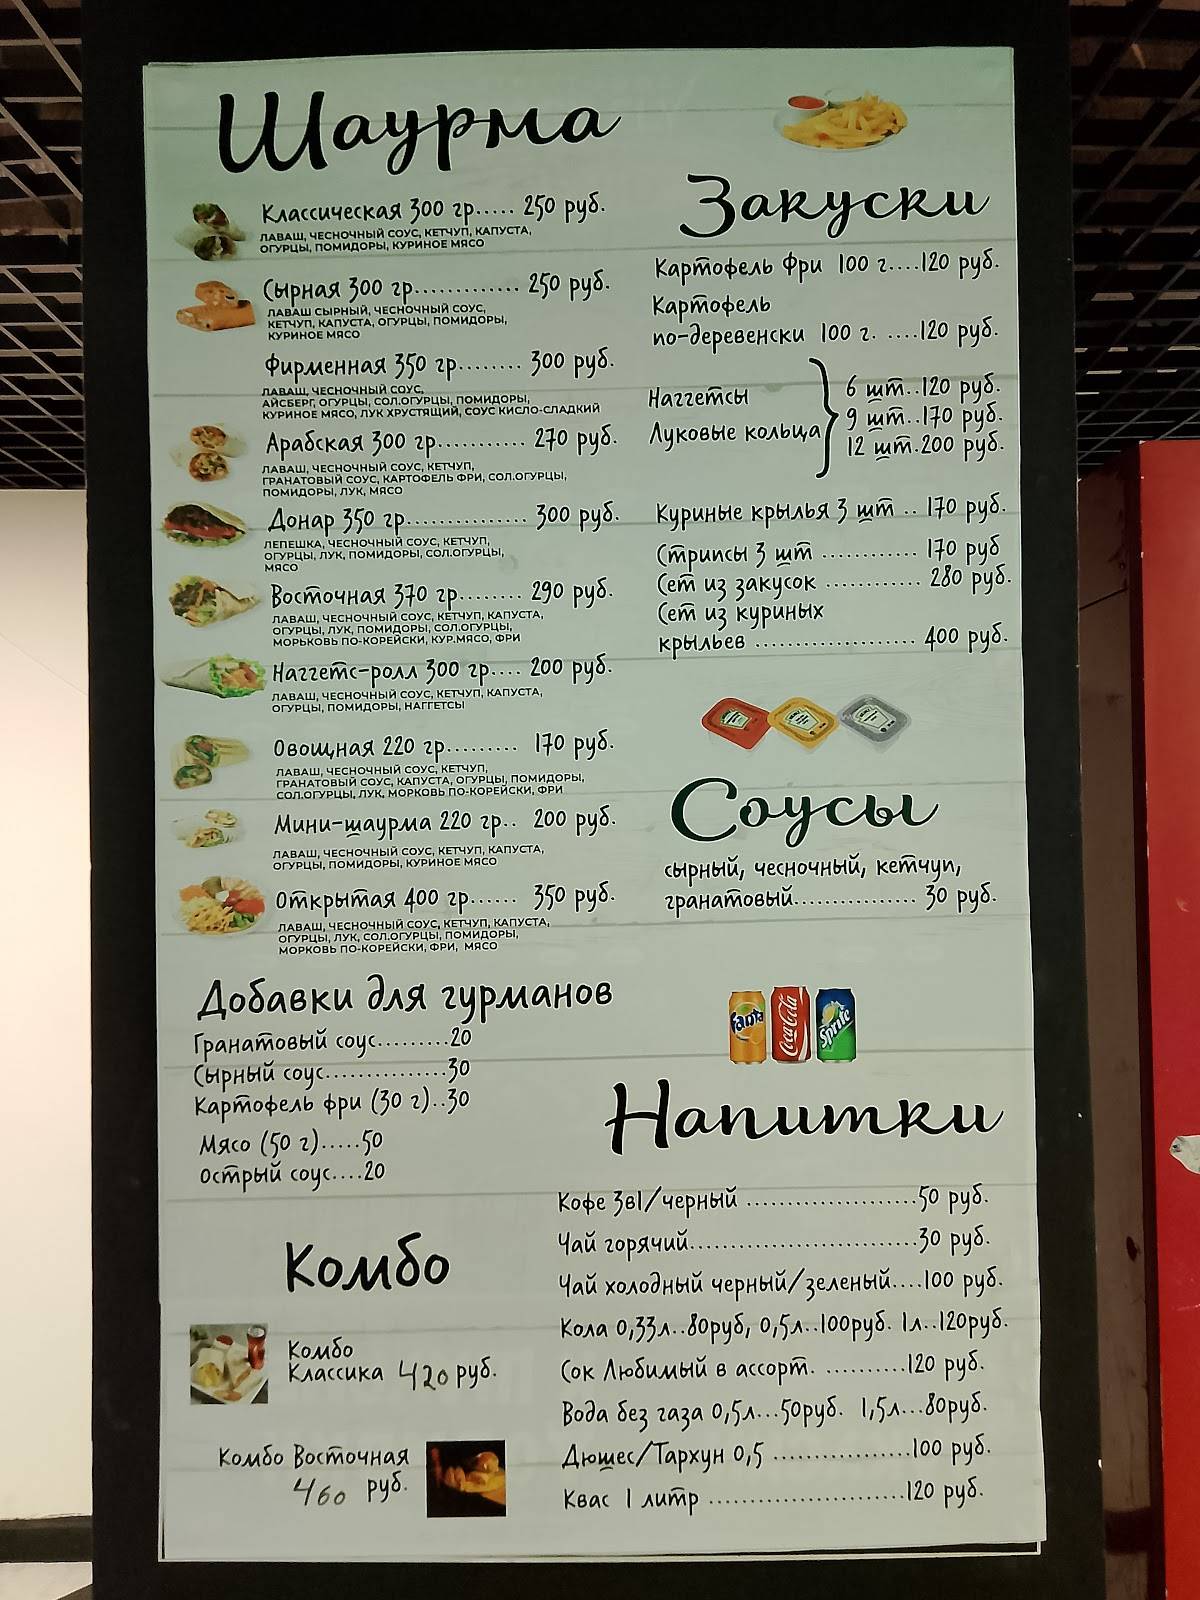 Шаурма
Классическая 300 гр..... 250 руб.
ЛАВАШ, ЧЕСНОЧНЫЙ СОУС, КЕТЧУП, КАПУСТА,
ОГУРЦЫ, ПОМИДОРЫ, КУРИНОЕ МЯСО
Сырная 300 гр............. 250 руб.
ЛАВАШ СЫРНЫЙ, ЧЕСНОЧНЫЙ СОУС,
КЕТЧУП, КАПУСТА, ОГУРЦЫ, ПОМИДОРЫ,
КУРИНОЕ МЯСО
Фирменная 350 гр........ 300 руб.
ЛАВАШ, ЧЕСНОЧНЫЙ СОУС,
АЙСБЕРГ, ОГУРЦЫ, СОЛ.ОГУРЦЫ, ПОМИДОРЫ,
КУРИНОЕ МЯСО, ЛУК ХРУСТЯЩИЙ, СОУС КИСЛО-СЛАДКИЙ
Арабская 300 гр........... 270 руб.
ЛАВАШ, ЧЕСНОЧНЫЙ СОУС, КЕТЧУП,
ГРАНАТОВЫЙ СОУС, КАРТОФЕЛЬ ФРИ, СОЛ.ОГУРЦЫ,
ПОМИДОРЫ, ЛУК, МЯСО
Донар 350 гр............... 300 руб.
ЛЕПЕШКА, ЧЕСНОЧНЫЙ СОУС, КЕТЧУП,
ОГУРЦЫ, ЛУК, ПОМИДОРЫ, СОЛ.ОГУРЦЫ,
МЯСО
Восточная 370 гр........ 290 руб.
ЛАВАШ, ЧЕСНОЧНЫЙ СОУС, КЕТЧУП, КАПУСТА,
ОГУРЦЫ, ЛУК, ПОМИДОРЫ, СОЛ.ОГУРЦЫ,
МОРЬКОВЬ ПО-КОРЕЙСКИ, КУР.МЯСО, ФРИ
Наггетс-ролл 300 гр.... 200 руб.
ЛАВАШ, ЧЕСНОЧНЫЙ СОУС, КЕТЧУП, КАПУСТА,
ОГУРЦЫ, ПОМИДОРЫ, НАГГЕТСЫ
Овощная 220 гр......... 170 руб.
ЛАВАШ, ЧЕСНОЧНЫЙ СОУС, КЕТЧУП,
ГРАНАТОВЫЙ СОУС, КАПУСТА, ОГУРЦЫ, ПОМИДОРЫ,
СОЛ.ОГУРЦЫ, ЛУК, МОРКОВЬ ПО-КОРЕЙСКИ, ФРИ
Мини-шаурма 220 гр.. 200 руб.
ЛАВАШ, ЧЕСНОЧНЫЙ СОУС, КЕТЧУП, КАПУСТА,
ОГУРЦЫ, ПОМИДОРЫ, КУРИНОЕ МЯСО
Открытая 400 гр...... 350 руб.
ЛАВАШ, ЧЕСНОЧНЫЙ СОУС, КЕТЧУП, КАПУСТА,
ОГУРЦЫ, ЛУК, СОЛ.ОГУРЦЫ, ПОМИДОРЫ,
МОРКОВЬ ПО-КОРЕЙСКИ, ФРИ, МЯСО
Добавки для гурманов
Гранатовый соус.........20
Сырный соус...............30
Картофель фри (30 г)..30
Мясо (50 г).....50
Острый соус....20
Комбо
Комбо
Классика 420 руб.
Комбо Восточная
460 руб.
Закуски
Картофель Фри 100 г....120 руб.
Картофель
по-деревенски 100 г. .....120 руб.
Наггетсы
Луковые кольца
6 шт..120 руб.
9 шт..170 руб.
12 шт.200 руб.
Куриные крылья 3 шт .. 170 руб.
Стрипсы 3 шт ............ 170 руб
Сет из закусок ............ 280 руб.
Сет из куриных
крыльев .................... 400 руб.
HEINZ
HEINZ
Соусы
сырный, чесночный, кетчуп,
гранатовый............... 30 руб.
Fanta
Coca-Cola
Sprite
Напитки
Кофе 3в1/черный .....................50 руб.
Чай горячий............................30 руб.
Чай холодный черный/зеленый....100 руб.
Кола 0,33л..80руб, 0,5л..100руб. 1л..120руб.
Сок Любимый в ассорт. ..........120 руб.
Вода без газа 0,5л...50руб. 1,5л...80руб.
Дюшес/Тархун 0,5 .................100 руб.
Квас 1 литр ........................120 руб.